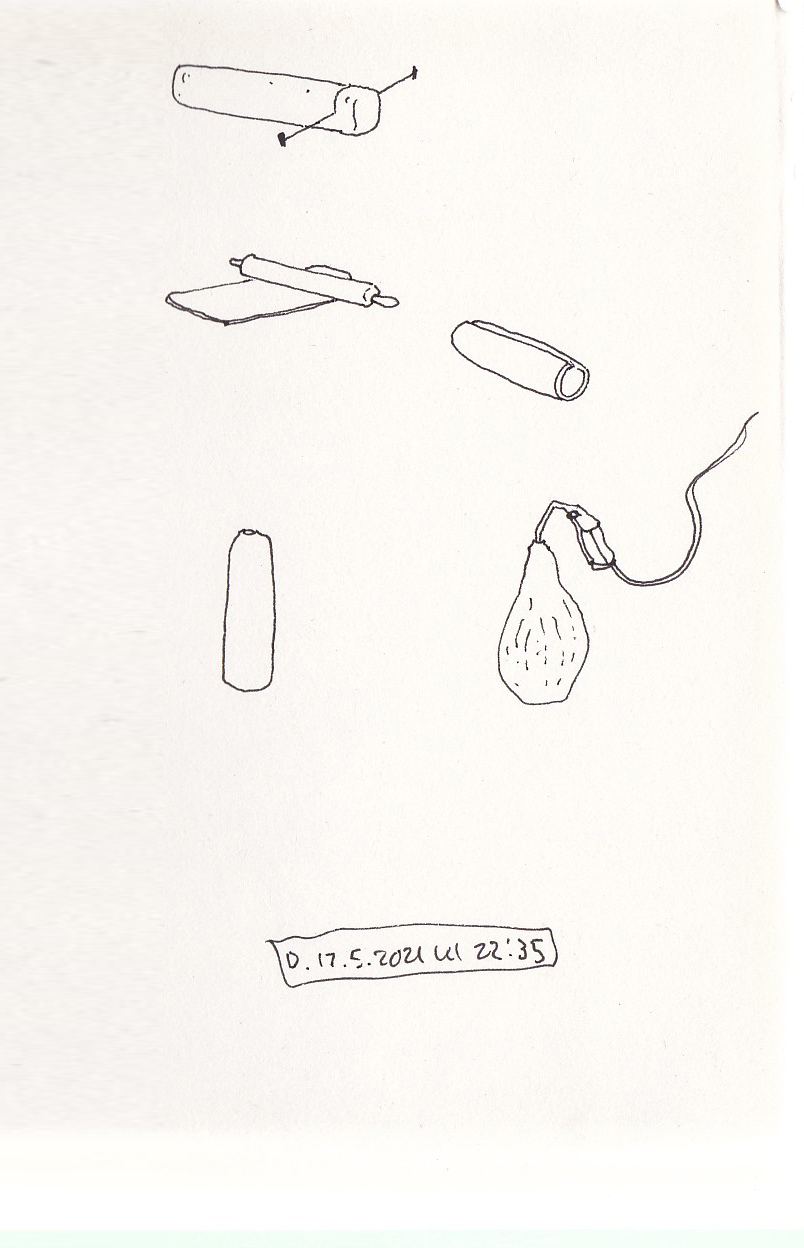 D. 17.5.2021 kl 22:35